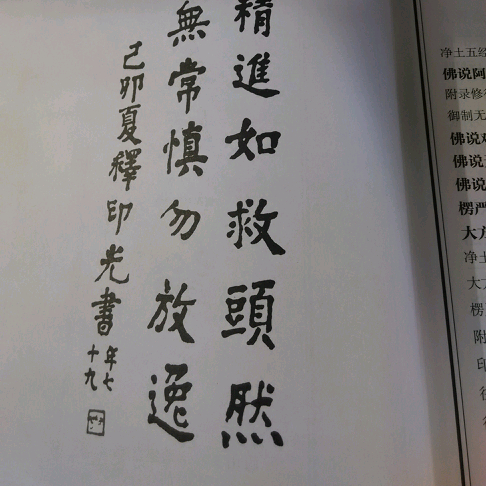 精進如救頭然
無常慎勿放逸
己卯夏釋印光書
年七十九
净土五经
佛说阿
附录修
御制无
佛说
佛说
佛说
楞严
大方
净土
大方
楞
附
印